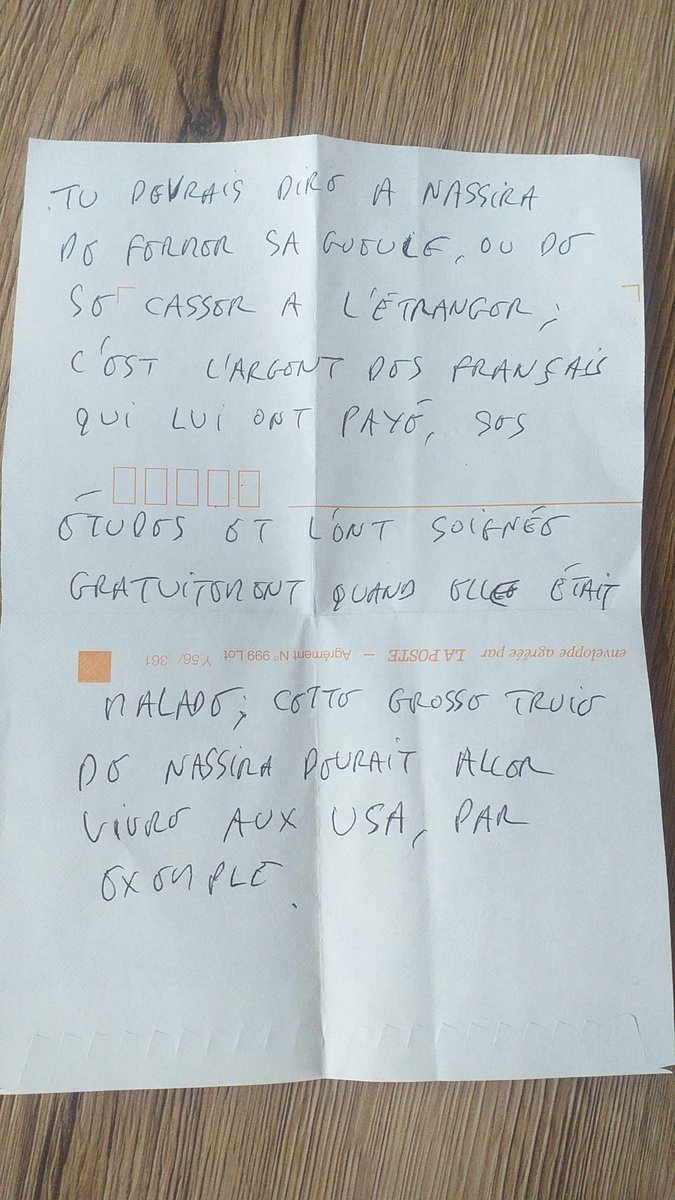 TU DEVRAIS DIRE A NASSIRA
DE FERMER SA GUEULE, OU DE
SE CASSER A L'ÉTRANGER;
C'EST L'ARGENT DES FRANÇAIS
QUI LUI ONT PAYÉ, SES
ÉTUDES ET L'ONT SOIGNÉE
GRATUITEMENT QUAND ELLE ÉTAIT
enveloppe agréée par LA POSTE – Agrément N° 999 Lot Y 56/ 361
MALADE; CETTE GROSSE TRUIE
DE NASSIRA DEVRAIT ALLER
VIVRE AUX USA, PAR
EXEMPLE.